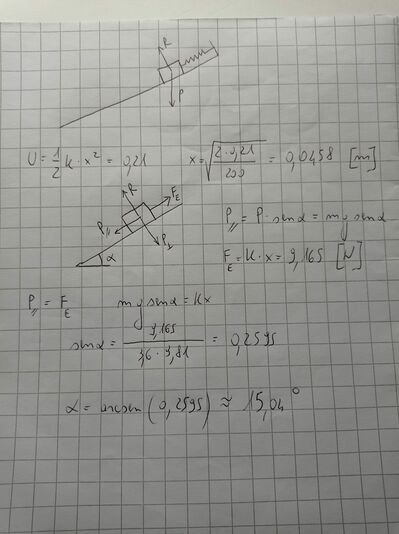 R
P
U = 1/2 K · x² = 0,21 x = √(2 · 0,21 / 200) = 0,0458 [m]
R F_E
P_∥ P_⊥
α
P_∥ = P · senα = mg senα
F_E = K · x = 9,165 [N]
P_∥ = F_E mg senα = Kx
senα = 9,165 / 3,6 · 9,81 = 0,2595
α = arcsen (0,2595) ≈ 15,04°